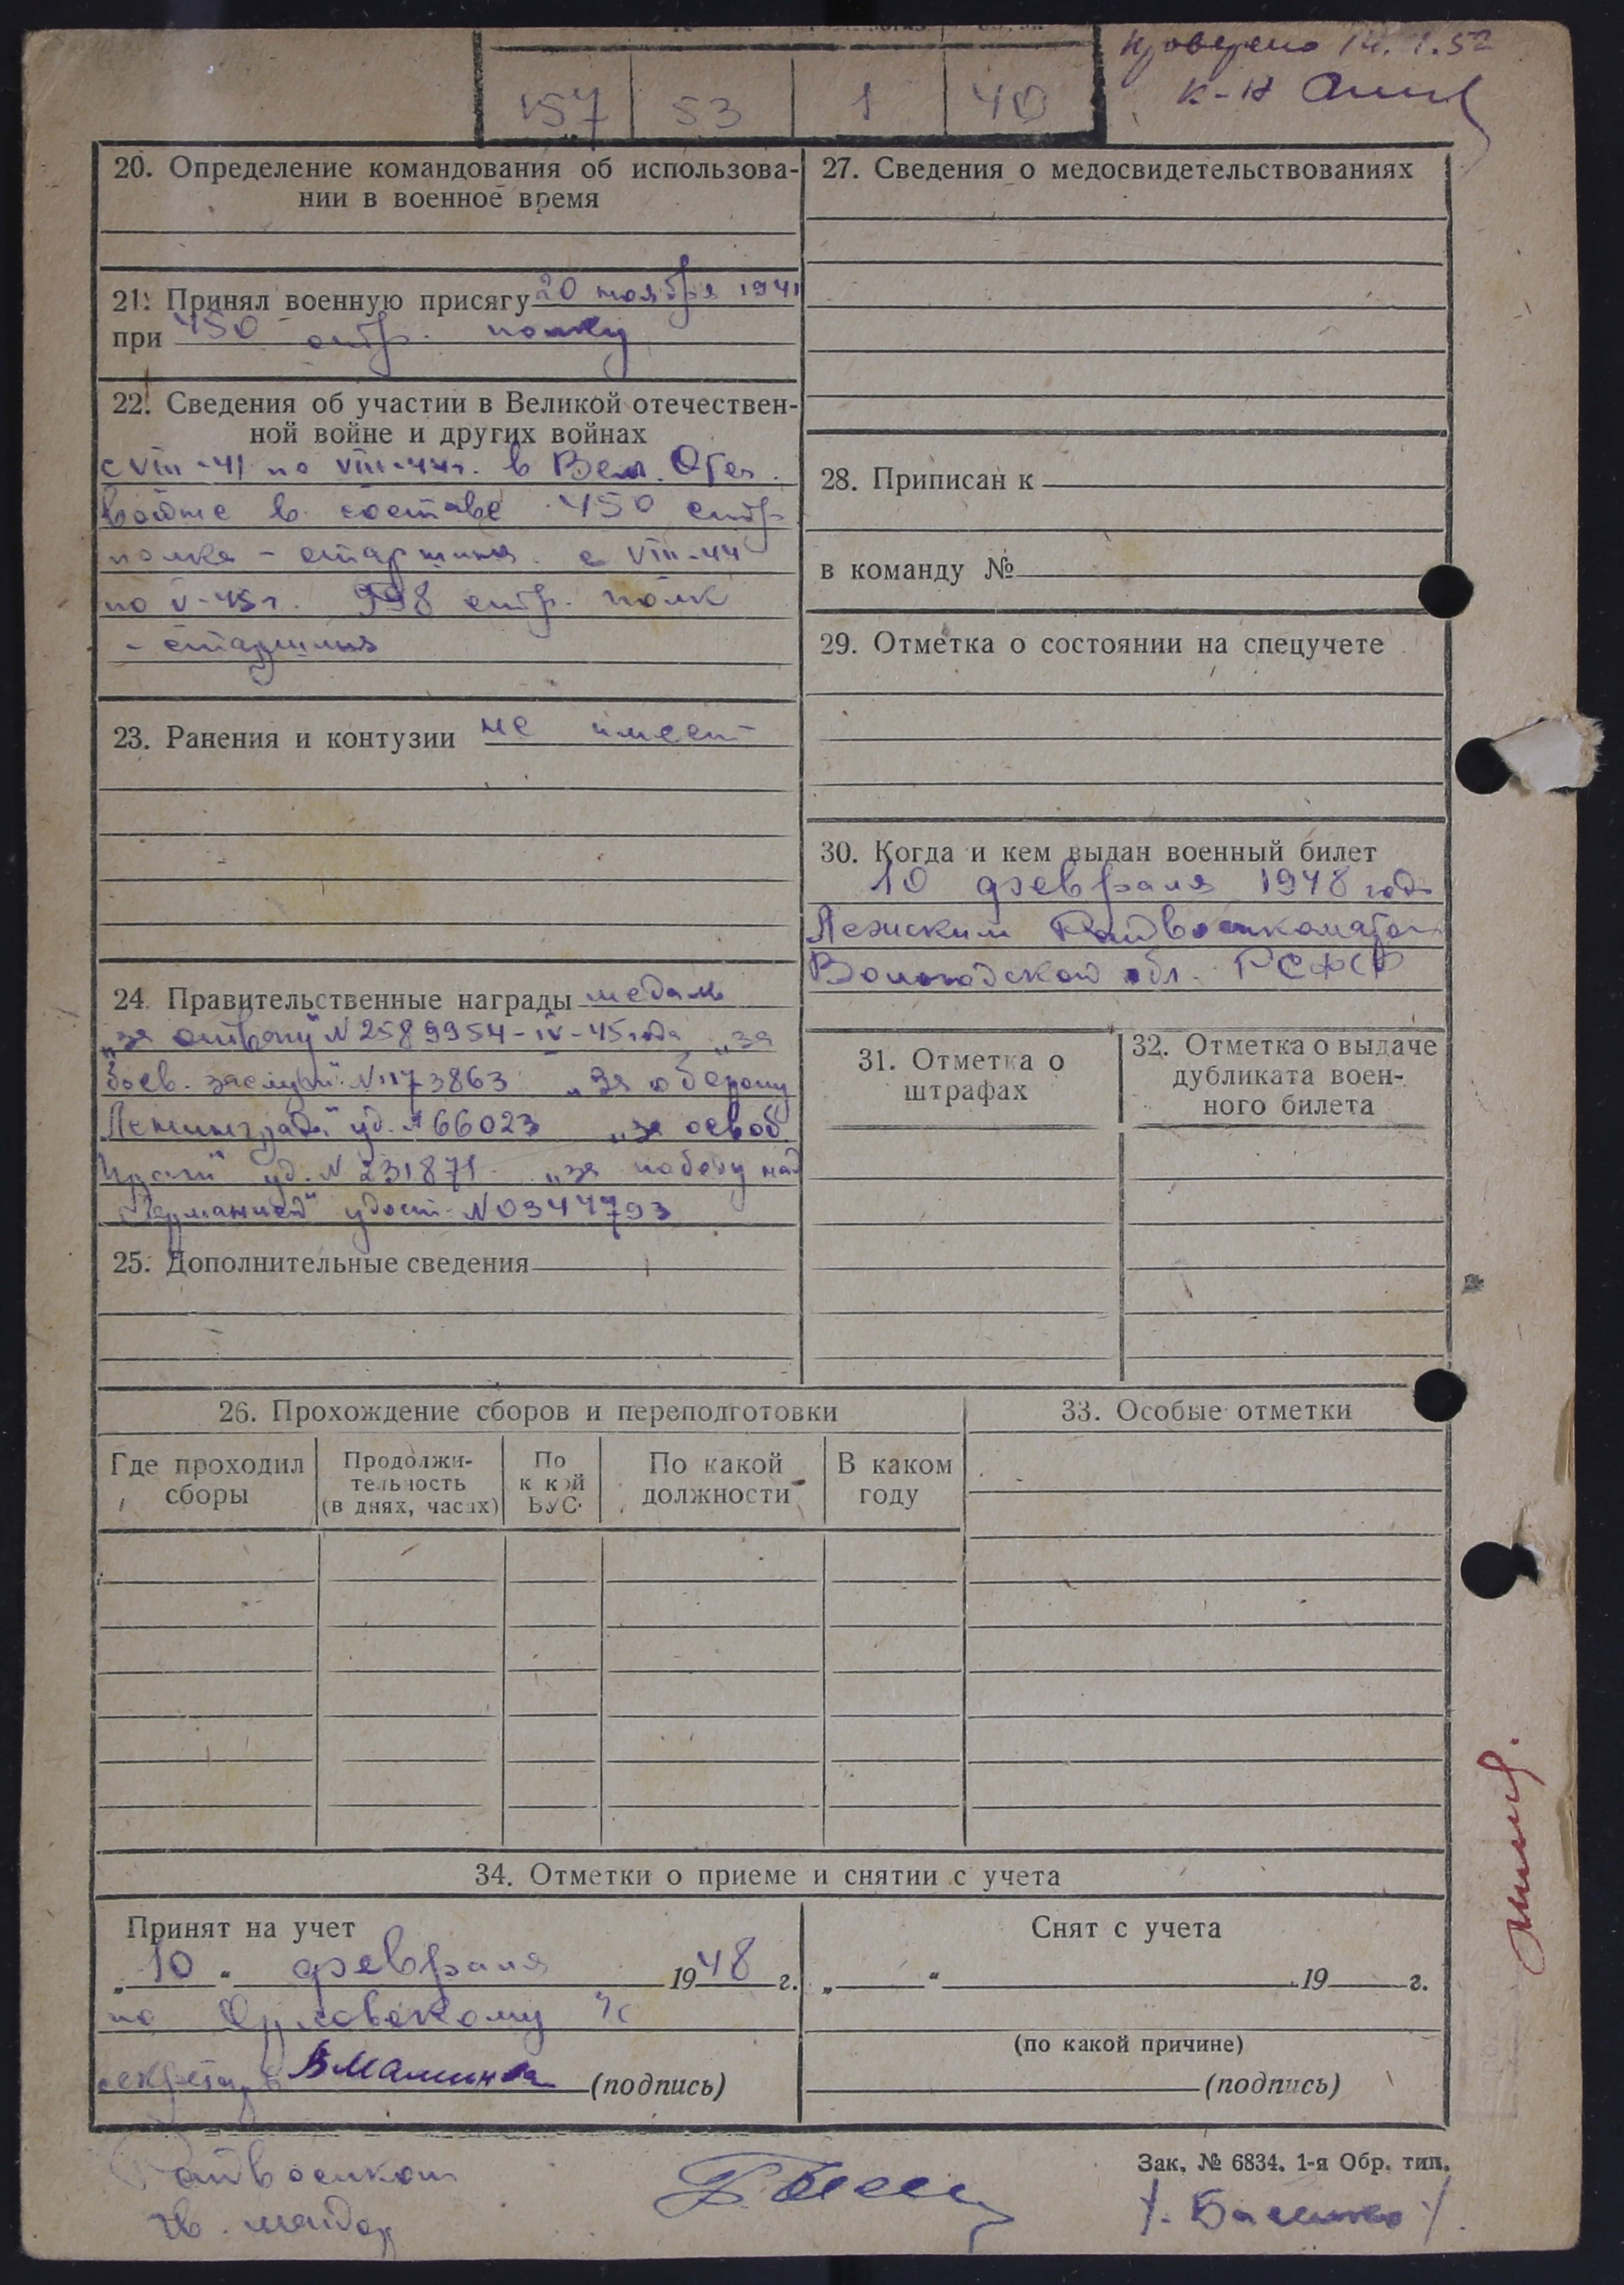 Проверено 14.1.52
к-н
157 53 1 40
20. Определение командования об использова-
нии в военное время
21. Принял военную присягу 20 ноября 1941
при 450 стр. полку
22. Сведения об участии в Великой отечествен-
ной войне и других войнах
с VIII-41 по VIII-44г. в Вел. Отеч.
войне в составе 450 стр.
полка - старшина с VIII-44
по V-45г. 998 стр. полк
- старшина
23. Ранения и контузии не имеет
24. Правительственные награды медаль
„за отвагу" N 2589954-IV-45 года „за
боев. заслуги" N 1173863 „за оборону
Ленинграда" уд. N 66023 „за освоб
Праги" уд. N 231871 „за победу над
Германией" удост. N 0344793
25. Дополнительные сведения
27. Сведения о медосвидетельствованиях
28. Приписан к
в команду №
29. Отметка о состоянии на спецучете
30. Когда и кем выдан военный билет
10 февраля 1948 года
Лежским Райвоенкоматом
Вологодской обл. РСФСР
31. Отметка о
штрафах
32. Отметка о выдаче
дубликата воен-
ного билета
26. Прохождение сборов и переподготовки
Где проходил
сборы
Продолжи-
тельность
(в днях, часах)
По
какой
ВУС
По какой
должности
В каком
году
33. Особые отметки
34. Отметки о приеме и снятии с учета
Принят на учет
„10" февраля 1948 г.
по Орловскому с/с
секретарь (подпись)
Снят с учета
„ " 19 г.
(по какой причине)
(подпись)
Зак. № 6834. 1-я Обр. тип.
Райвоенком
гв. майор